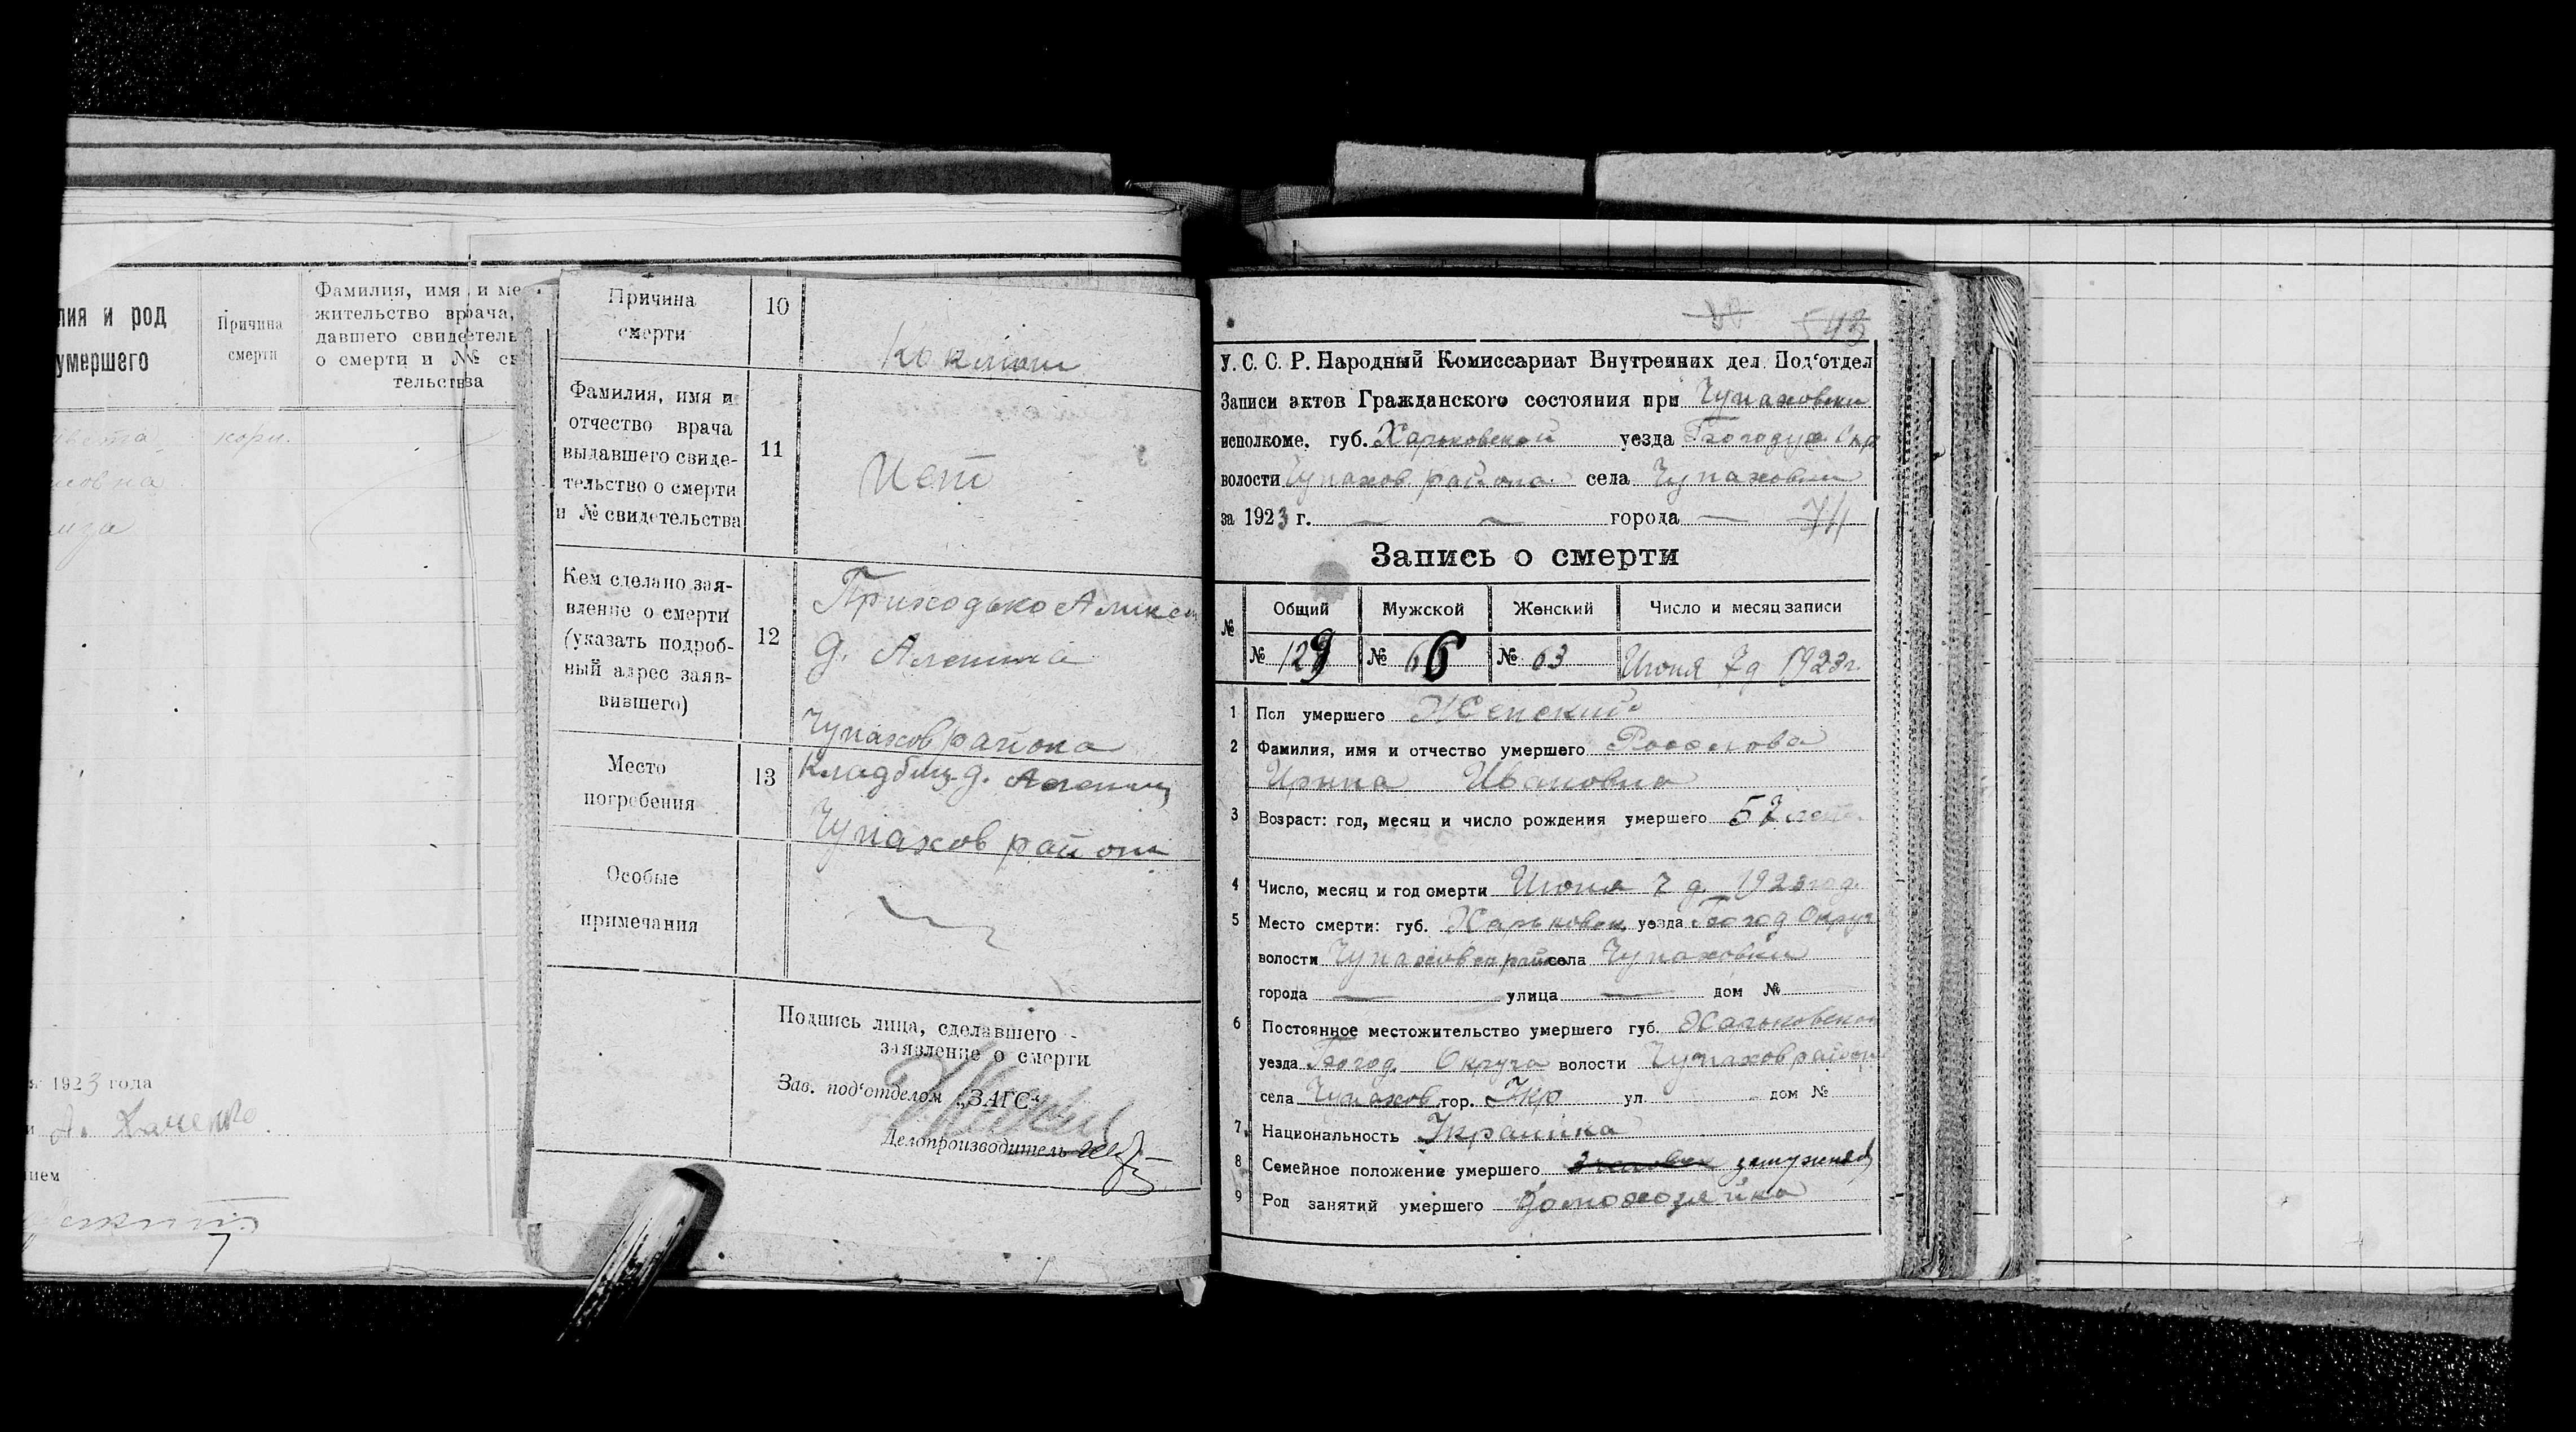 лия и род
умершего
Причина
смерти
Фамилия, имя и ме
жительство врача,
давшего свидетель
о смерти и № св
тельства
корь.
1923 года
нием
7
Причина
смерти
10
Коклюш
Фамилия, имя и
отчество врача
выдавшего свиде-
тельство о смерти
и № свидетельства
11
Нет
Кем сделано зая-
вление о смерти
(указать подроб-
ный адрес заяв-
вившего)
12
Приходько Алексей
д. Аленина
Чупахов района
Место
погребения
13
Кладбищ д.
Чупахов района
Особые
примечания
Подпись лица, сделавшего
заявление о смерти
Зав. под'отделом „ЗАГС"
Делопроизводитель
543
У. С. С. Р. Народный Комиссариат Внутренних дел Под'отдел
Записи актов Гражданского состояния при Чупаховском
исполкоме, губ. Харьковской уезда Богодух. Окр
волости Чупахов района села Чупаховки
за 1923 г. — — города — 74
Запись о смерти
№ Общий Мужской Женский Число и месяц записи
№ 129 № 66 № 63 Июня 7 д 1923 г.
1 Пол умершего Женский
2 Фамилия, имя и отчество умершего
Ирина Ивановна
3 Возраст: год, месяц и число рождения умершего 57 лет.
4 Число, месяц и год смерти Июня 7 д. 1923 год.
5 Место смерти: губ. Харьковск. уезда Богод Округ
волости Чупаховск района села Чупаховки
города — улица — дом №
6 Постоянное местожительство умершего губ. Харьковской
уезда Богод. Округа волости Чупахов район
села Чупахов гор. Укр ул. дом №
7 Национальность Украинка
8 Семейное положение умершего замужняя
9 Род занятий умершего Домохозяйка